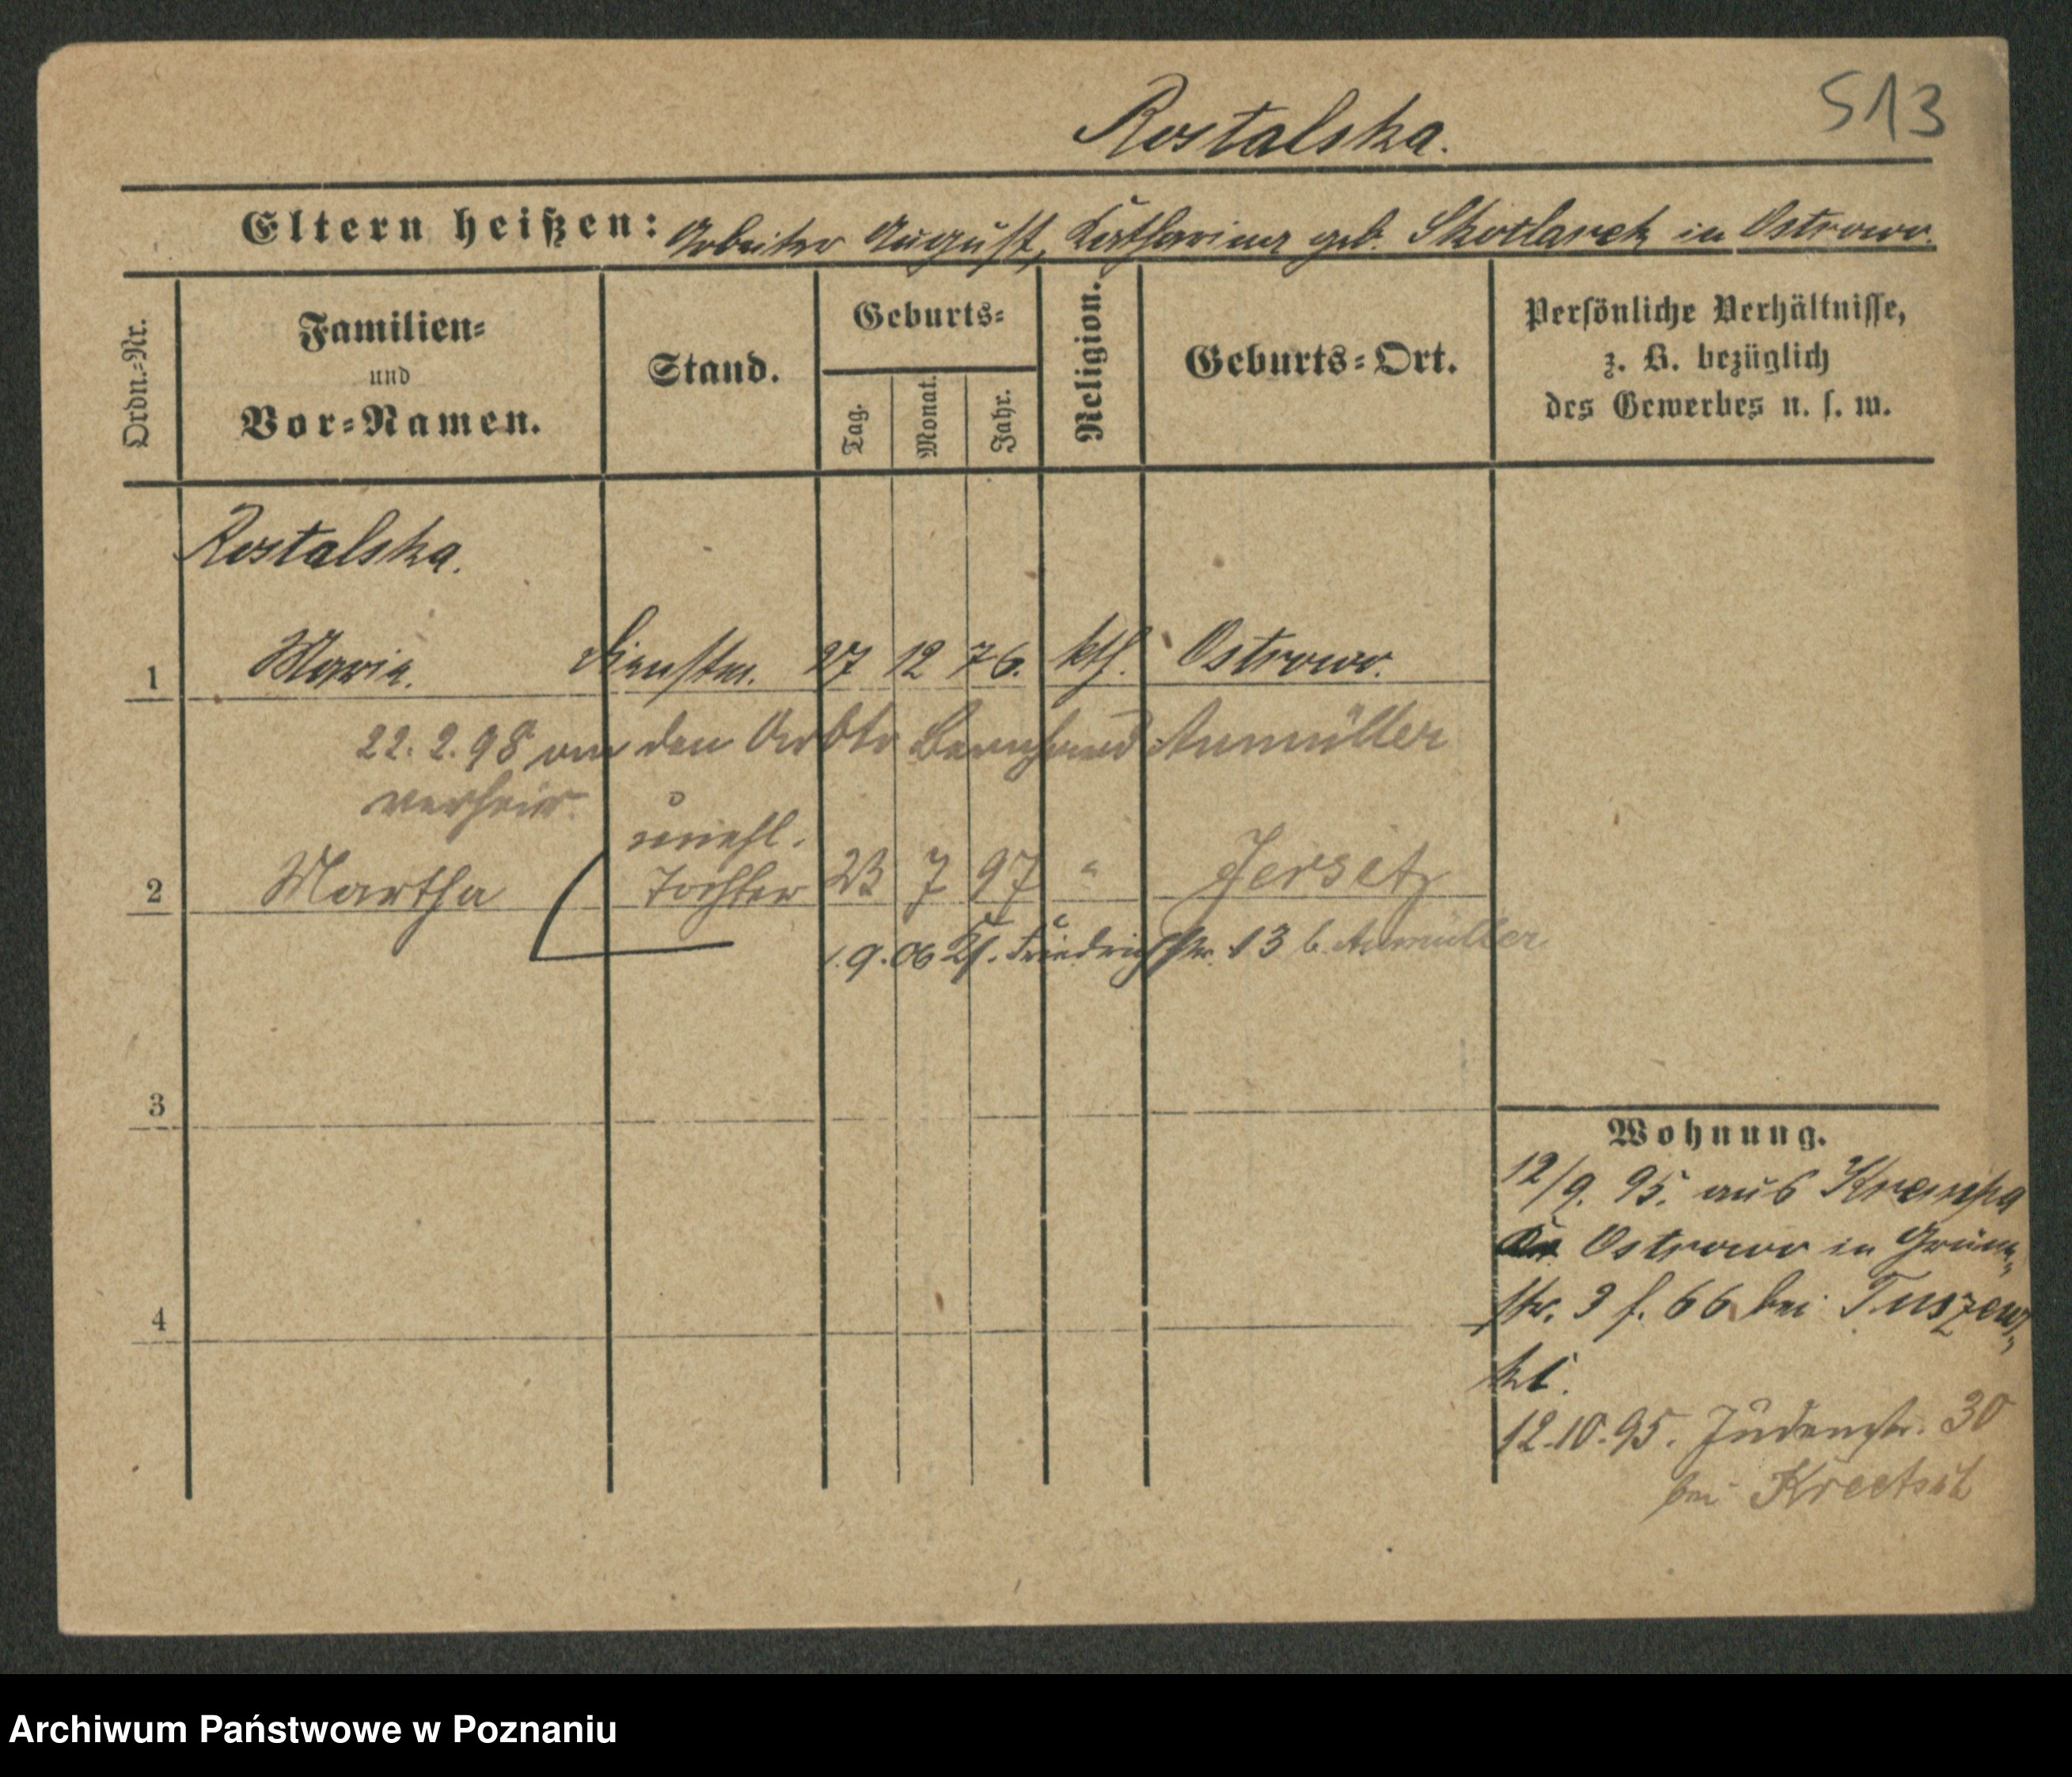 513
Rostalska.
Eltern heißen: Arbeiter August, Katharina geb. Skotlarek in Ostrowo.
Ordn.-Nr.
Familien-
und
Vor-Namen.
Stand.
Geburts-
Tag.
Monat.
Jahr.
Religion.
Geburts-Ort.
Persönliche Verhältnisse,
z. B. bezüglich
des Gewerbes u. s. w.
Rostalska.
1 Marie. Dienstm. 27 12 76. kth. Ostrowo.
22. 2. 98 an den Arbtr Bernhard Aumüller
verheir.
unehl.
2 Martha Tochter 23 7 97 " Jersitz
1. 9. 06 Friedrichstr. 13 b. Aumüller
3
4
Wohnung.
12/9. 95. aus Krempa
Ostrowo in Grün-
str. 3 f. 66 bei Tuszews-
ki.
12.10.95. Judenstr. 30
bei
Archiwum Państwowe w Poznaniu